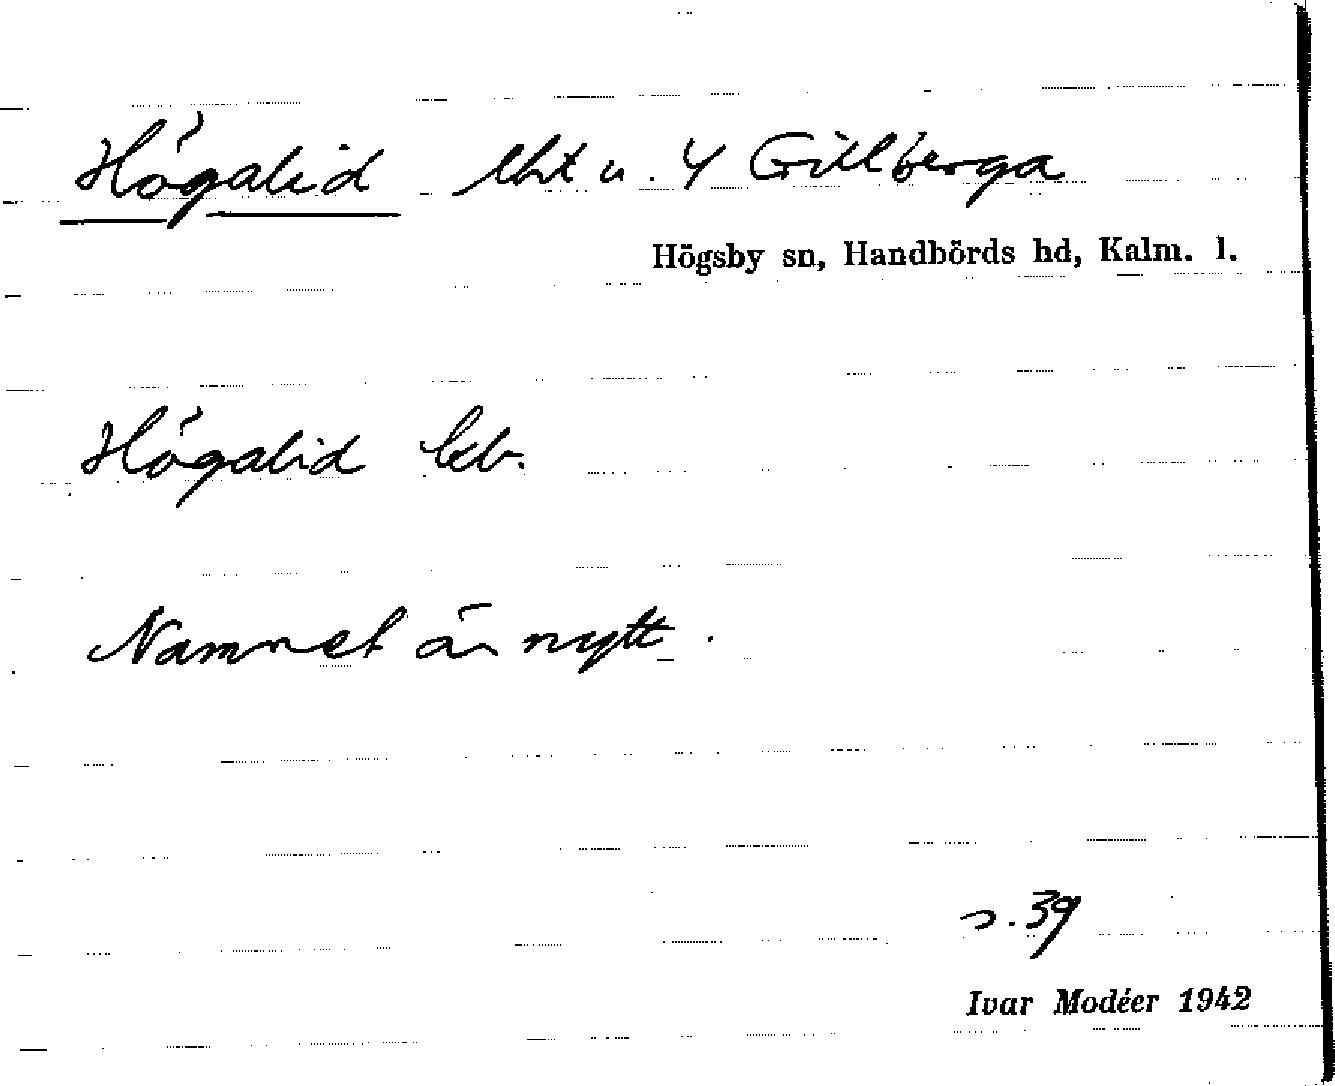 Högalid lht u. 4 Gillberga
Högsby sn, Handbörds hd, Kalm. l.
Högalid
Namnet är nytt.
s. 39
Ivar Modéer 1942